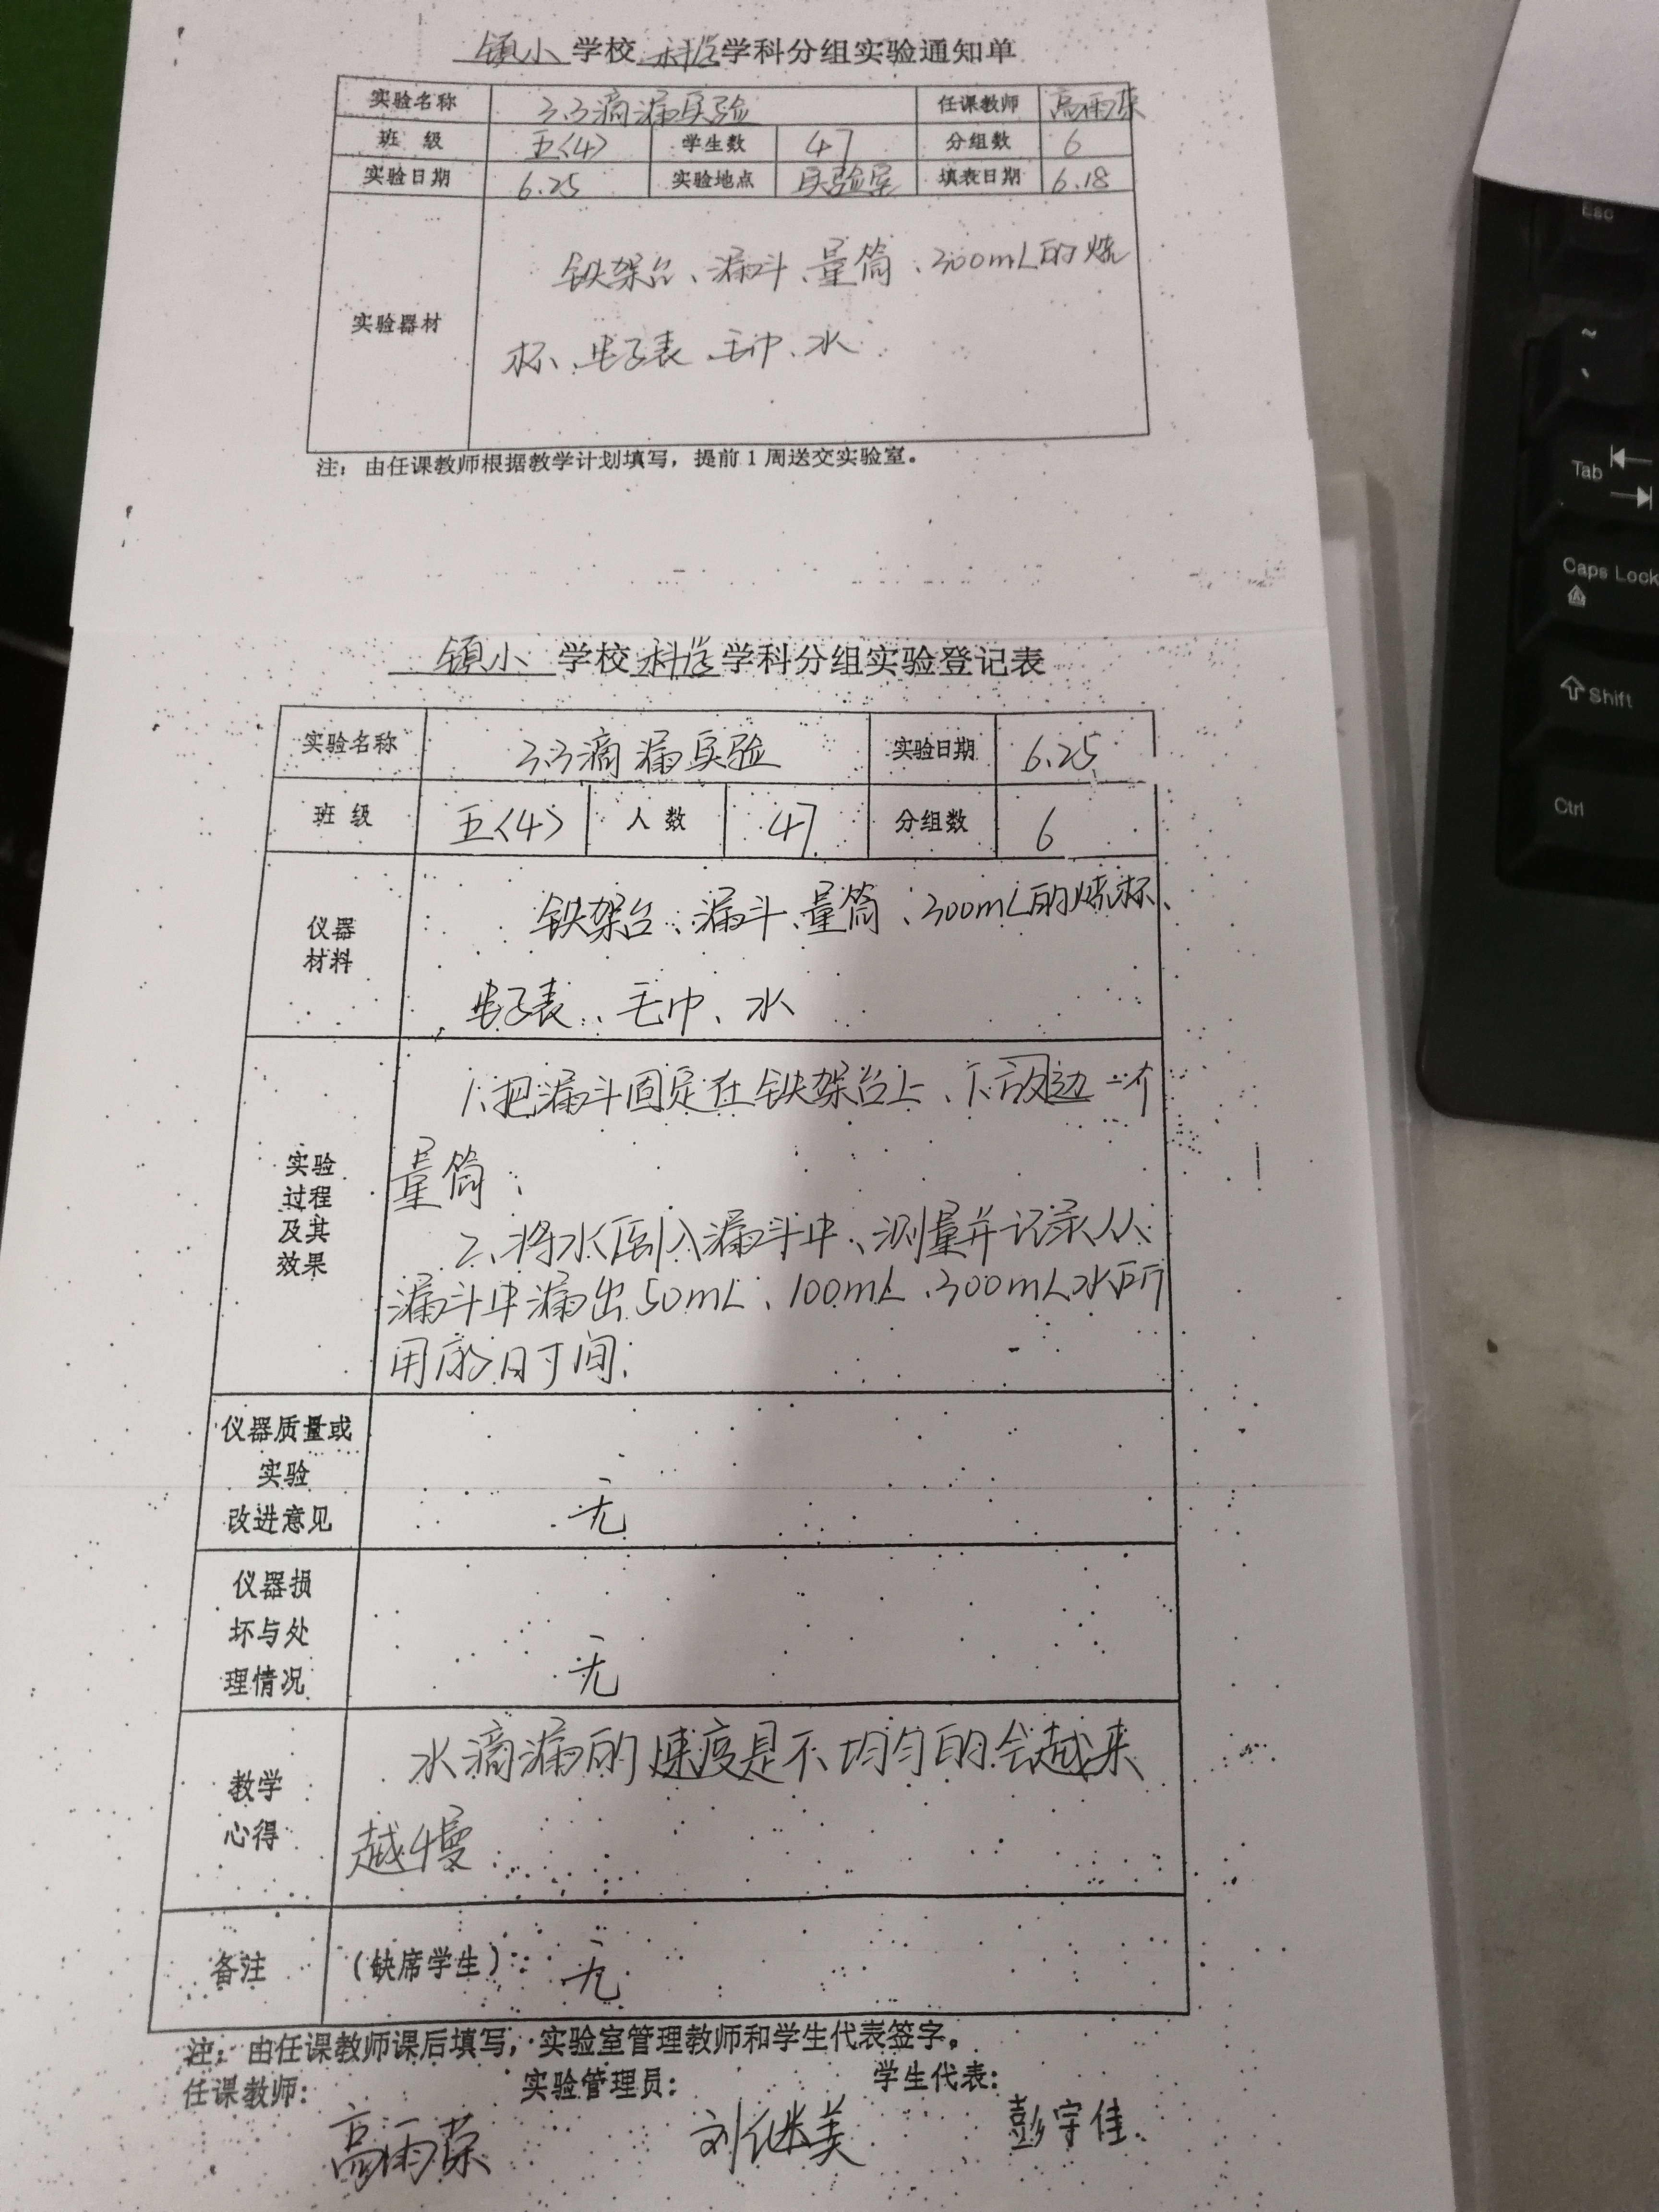 镇小 学校 科学 学科分组实验通知单
实验名称 3.3滴漏实验 任课教师 高雨荣
班 级 五〈4〉 学生数 47 分组数 6
实验日期 6.25 实验地点 实验室 填表日期 6.18
铁架台、漏斗、量筒、300mL的烧
实验器材
杯、电子表、毛巾、水
注：由任课教师根据教学计划填写，提前1周送交实验室。
镇小 学校 科学 学科分组实验登记表
实验名称 3.3滴漏实验 实验日期 6.25
班 级 五〈4〉 人 数 47 分组数 6
仪器
材料
铁架台、漏斗、量筒、300mL的烧杯、
电子表、毛巾、水
实验
过程
及其
效果
1、把漏斗固定在铁架台上、下放边一个
量筒；
2、将水倒入漏斗中、测量并记录从
漏斗中漏出50mL、100mL、300mL水所
用的时间.
仪器质量或
实验
改进意见
无
仪器损
坏与处
理情况
无
教学
心得
水滴漏的速度是不均匀的会越来
越慢
备注 （缺席学生）： 无
注：由任课教师课后填写，实验室管理教师和学生代表签字。
任课教师： 实验管理员： 学生代表：
高雨荣 刘继美 彭宇佳
Esc
~
、
Tab
Caps Lock
Shift
Ctrl